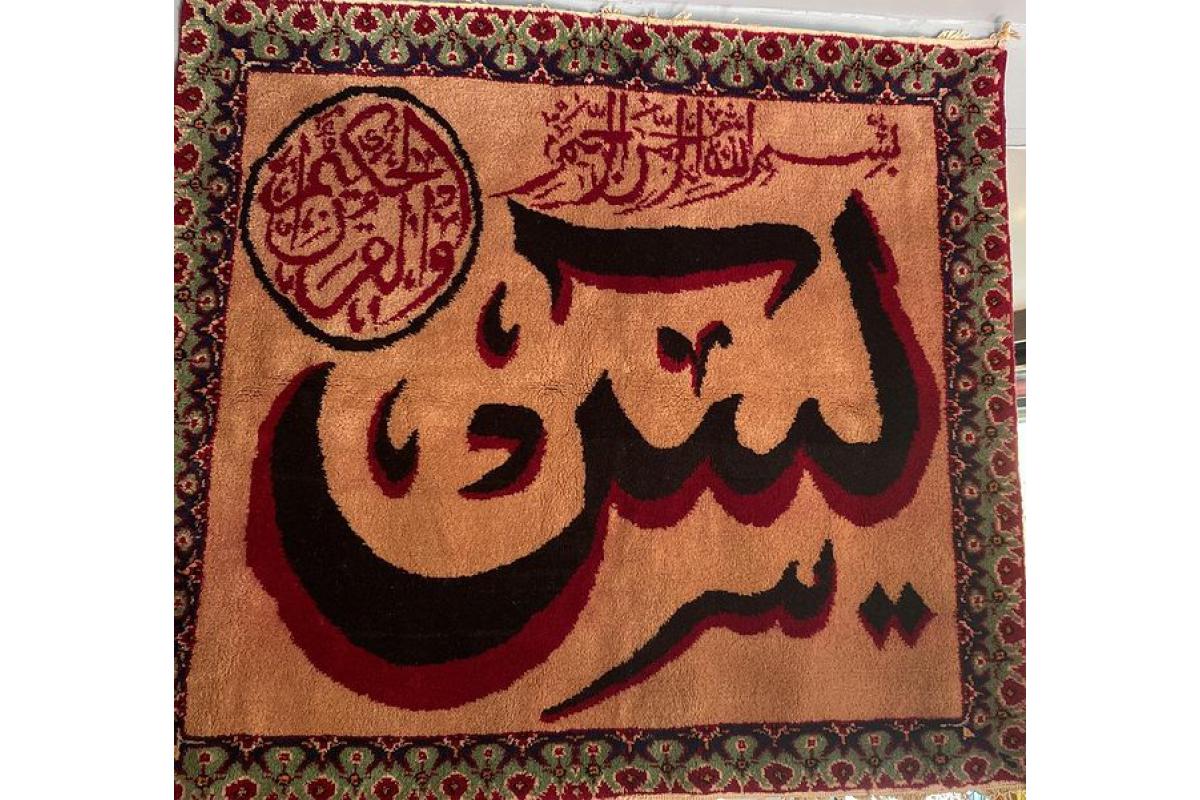 بسم الله الرحمن الرحيم
والقرآن الحكيم
يس